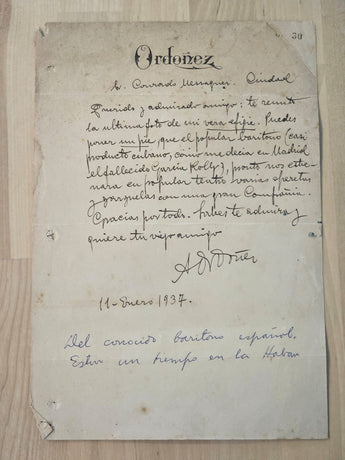 30
Ordoñez
S. Conrado Massaguer. Ciudad
Querido y admirado amigo: te remito
la ultima foto de mi vera efigie. Puedes
poner un pie, que el popular baritono (casi
producto cubano, cómo me decia en Madrid
el fallecido Garcia Kolly), pronto nos estre-
nara en popular teatro varias operetas
y zarzuelas con una gran Compañia.
Gracias por todo. Sabes te admira y
quiere tu viejo amigo
A Ordoñez
11-Enero 1937.
Del conocido baritono español.
Estuvo un tiempo en la Habana